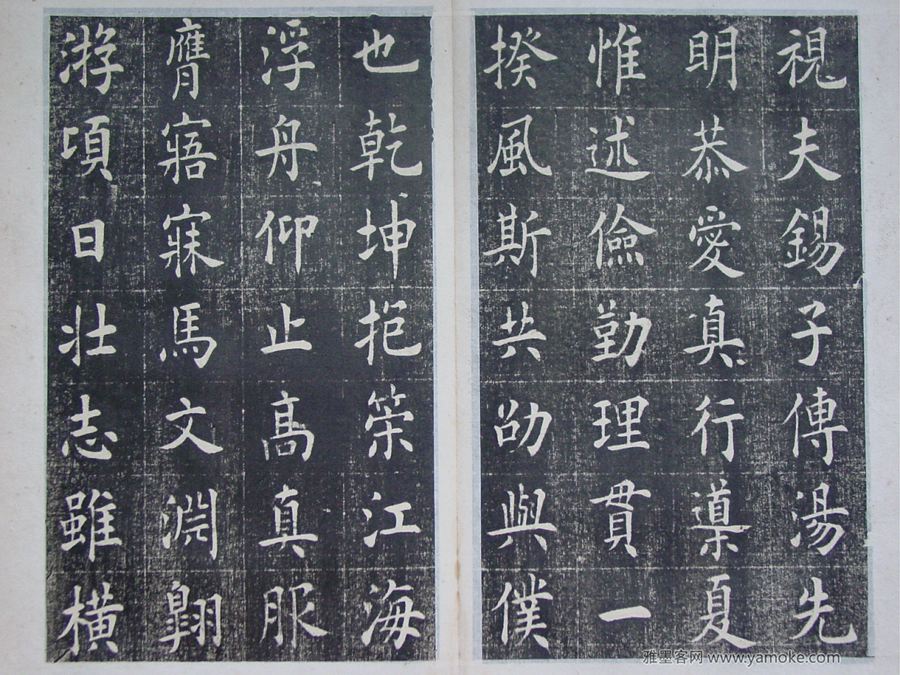 視夫錫子傳湯先
明恭愛真行夏
惟述儉勤理貫一
揆風斯共劭與僕
也乾坤抱筞江海
浮舟仰止髙真服
膺寤寐馬文淵翱
游項日壯志雖橫
雅墨客网 www.yamoke.com